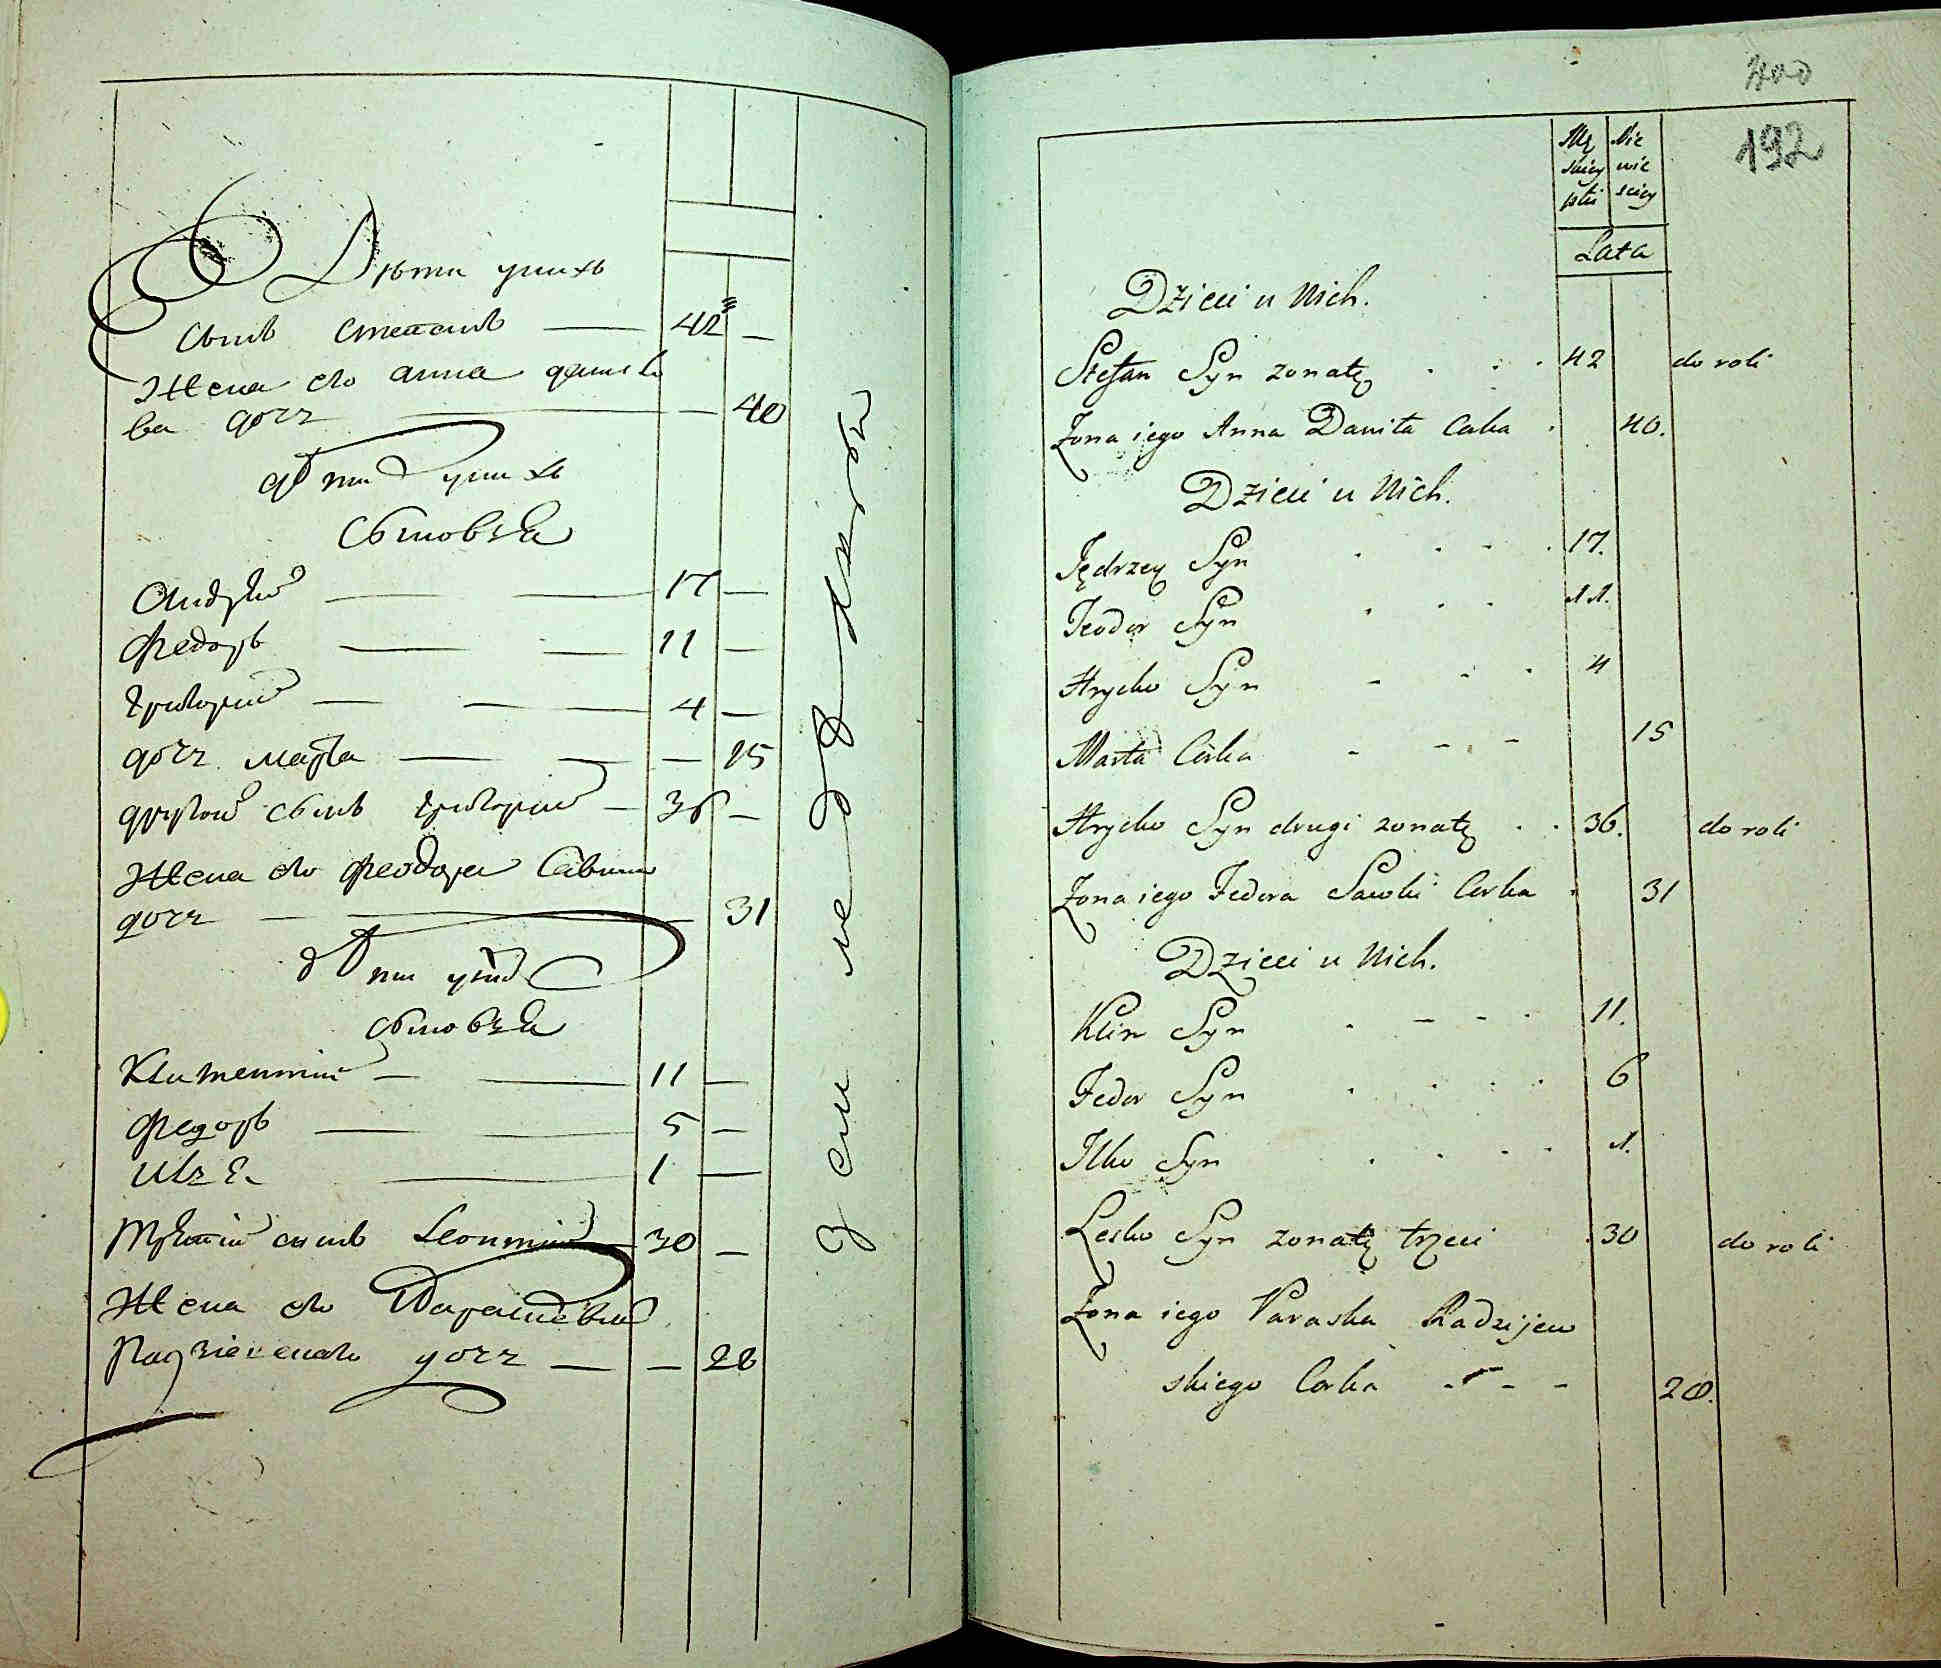 Дѣти у нихъ
Сынъ Степанъ — 42 —
Жена его анна данило
ва дочь — 40
дѣти у нихъ
Сыновья
Андрѣй — 17 —
Федоръ — 11 —
Григорий — 4 —
дочь марѳа — — 15
другой сынъ Григорий — 36 —
Жена его Феодора Савина
дочь — 31
дѣти у нихъ
сыновья
Климентий — 11 —
Федоръ — 5 —
Илья — 1 —
Третий сынъ Леонтий 30 —
Жена его Парасцевия
дочь — — 28
400
192
Mę Nie
skiey wie
płci sciey
Lata
Dzieci u Nich.
Stefan Syn zonaty . . . 42 do roli
Zona iego Anna Daniła Corka . 40.
Dzieci u Nich.
Jędrzey Syn . . - . 17.
Teodor Syn . . . 11.
Hryćko Syn - - . 4
Marta Córka - - . - 15
Hryćko Syn drugi zonaty . . 36. do roli
Zona iego Fedora Sawki Corka . 31
Dzieci u Nich.
Klim Syn . - - . 11.
Fedor Syn . . . . 6
Ilko Syn . . . . 1.
Lesko Syn zonaty trzeci . 30 do roli
Zona iego Paraska Radzijew
skiego Corka - - - - 28.